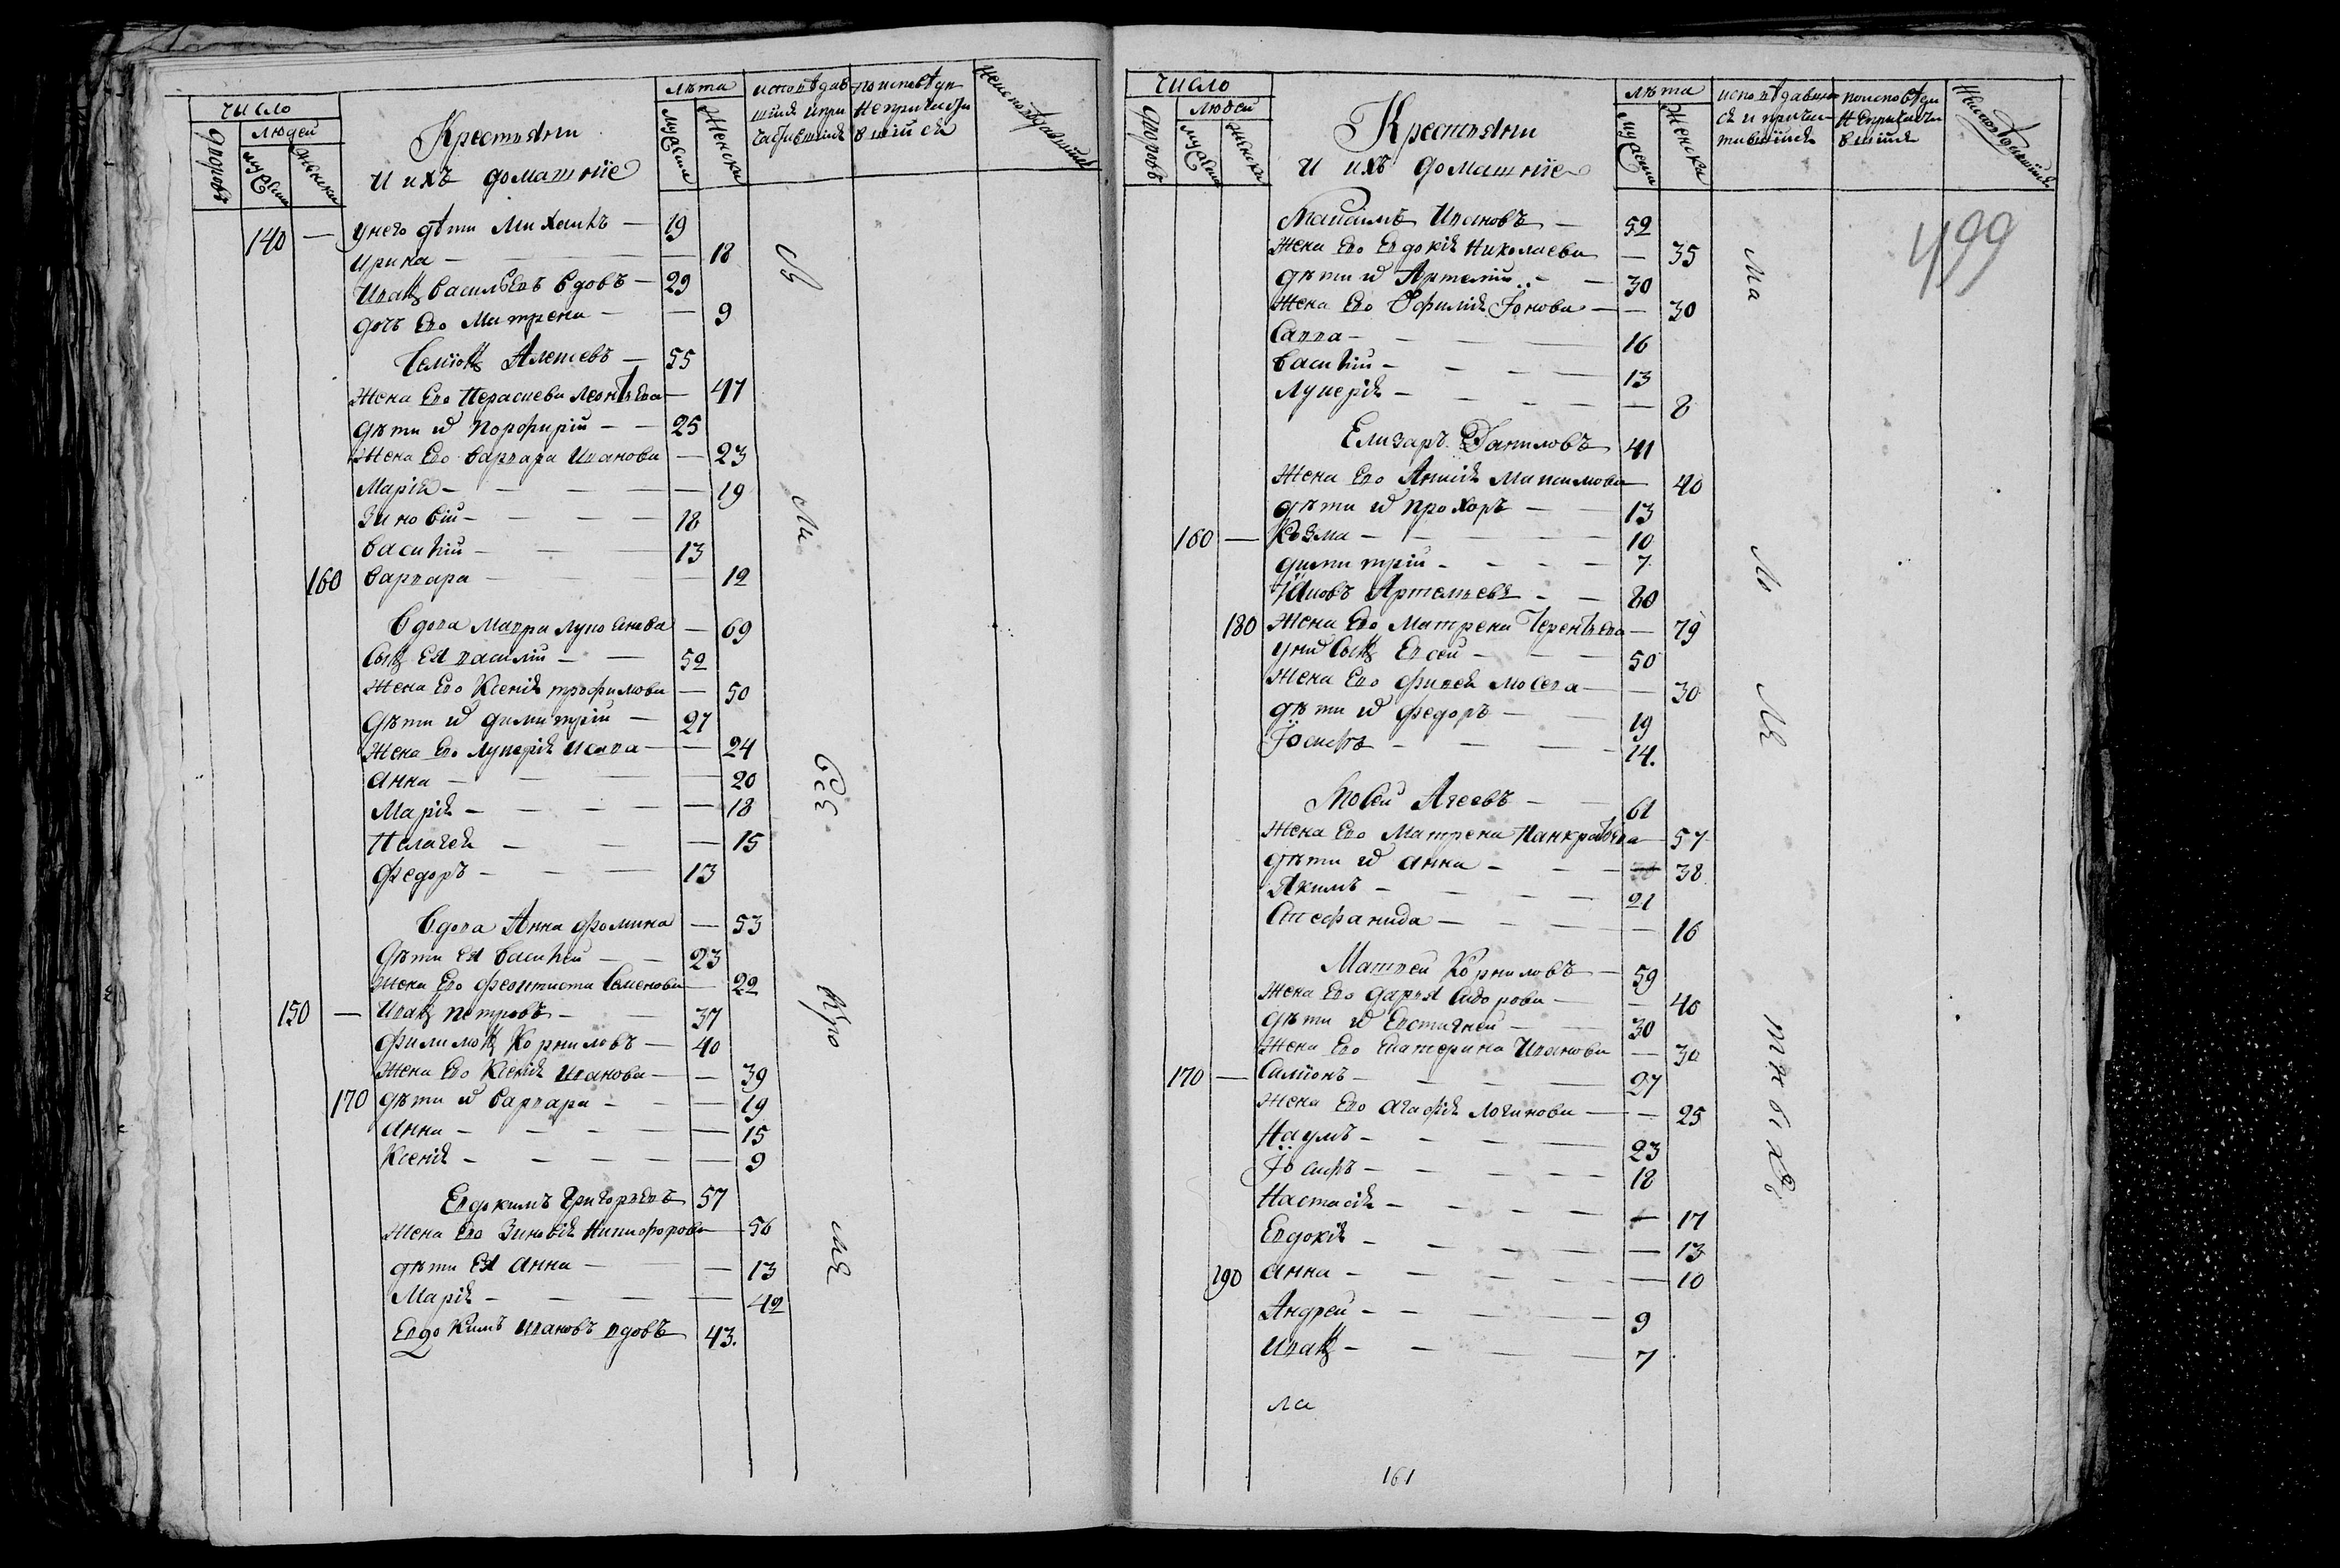 число
дворовъ
людей
мужеска
женска
Крестьяни
и ихъ домашніе
лѣта
мужески
женски
исповѣдав
шіися и при
част͠ившіися
поисповѣди
непричасти
вшіися
неисповѣдавшіися
140 — у него дѣти Михаилъ — 19
Ирина — — 18
Иванъ Васильевъ вдовъ — 29
дочь Его Матрена — — 9
Семіонъ Алексевъ — 55
Жена Его Пераскева Леонтьева — 47
дѣти ихъ Порфирій — — 25
Жена Его Варвара Иванова — 23
Марія — — — — 19
Зиновій — — — 18
Василій — — 13
160 Варвара — — 12
Вдова Мавра Лупо — 69
Сынъ Ея Василій — — 52
Жена Его Ксенія Трофимова — 50
дѣти ихъ Димитрій — 27
Жена Его Лукерія Исаева — — 24
Анна — — — 20
Марія — — — — 18
Пелагея — — — 15
Федоръ — — — 13
Вдова Анна Фомина — 53
дѣти Ея Василій — — 23
Жена Его Феоктиста Семенова — 22
150 — Иванъ Петровъ — — 37
Филимонъ Корниловъ — 40
Жена Его Ксенія Иванова — — 39
170 дѣти ихъ Варвара — — 19
Анна — — — — 15
Ксенія — — — — 9
Евдокимъ Григорьевъ 57
Жена Его Зиновія Никифорова — 56
дѣти Ея Анна — — 13
Марія — — — — 42
Евдокимъ Ивановъ вдовъ 43.
число
дворовъ
людей
мужеска
женска
Крестьяни
и ихъ домашніе
лѣта
мужеска
женска
исповѣдавши
ся и причас
тившіися
поисповѣди
Непричасти
вшіися
Неисповѣдавшіися
499
Максимъ Ивановъ — 52
Жена Его Евдокія Николаева — 35
дѣти ихъ Артемій — — 30
Жена Его Офимія Іонова — — 30
Савва — — — 16
Василій — — — — 13
Лукерія — — — — — 8
Елизаръ Даниловъ 41
Жена Его Анисія Максимова — 40
дѣти ихъ Прохоръ — — 13
160 — Козма — — — — 10
Димитрій — — — — 7
Іаковъ Артемьевъ — — 80
180 Жена Его Матрена Терентьева — 79
у них Сынъ Евсей — — — 50
Жена Его Фивея Мосева — — 30
дѣти ихъ Федоръ — — 19
Іосифъ — — — 14.
Мосей Агеевъ — — 61
Жена Его Матрена Панкратьева — 57
дѣти ихъ Анна — — — 38
Якимъ — — — — 21
Стефанида — — — — 16
Матвей Корниловъ — 59
Жена Его Дарья Сидорова — — 40
дѣти ихъ Евстигней — — 30
Жена Его Екатерина Иванова — 30
170 — Симіонъ — — — — 27
Жена Его Агафія Логинова — — 25
Наумъ — — — — 23
Іосифъ — — — — 18
Настасія — — — — — 17
Евдокія — — — — — 13
190 Анна — — — — — 10
Андрей — — — — 9
Иванъ — — — — 7
ма
161